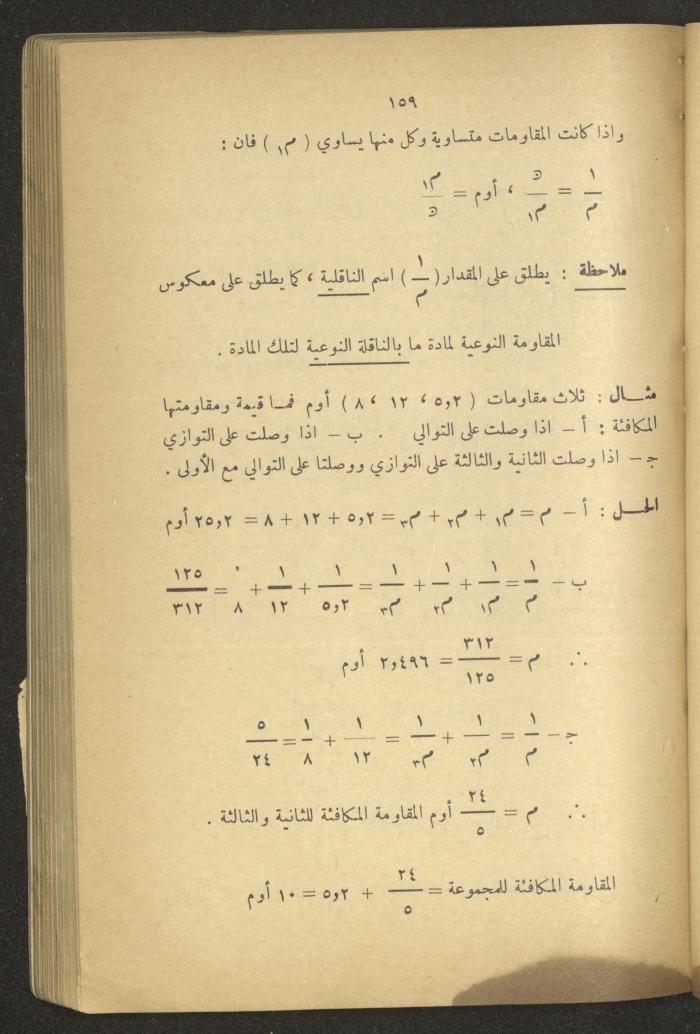 ١٥٩
واذا كانت المقاومات متساوية وكل منها يساوي ( م١ ) فان :
١/م = ن/م١ ، أوم = م١/ن
ملاحظة : يطلق على المقدار ( ١/م ) اسم الناقلية ، كما يطلق على معكوس
المقاومة النوعية لمادة ما بالناقلة النوعية لتلك المادة .
مثال : ثلاث مقاومات ( ٥,٢ ، ١٢ ، ٨ ) أوم فما قيمة ومقاومتها
المكافئة : أ – اذا وصلت على التوالي . ب – اذا وصلت على التوازي
ج – اذا وصلت الثانية والثالثة على التوازي ووصلتا على التوالي مع الأولى .
الحل : أ – م = م١ + م٢ + م٣ = ٥,٢ + ١٢ + ٨ = ٢٥,٢ أوم
ب – ١/م = ١/م١ + ١/م٢ + ١/م٣ = ١/٥,٢ + ١/١٢ + /٨ = ١٢٥/٣١٢
∴ م = ٣١٢/١٢٥ = ٢,٤٩٦ أوم
ج – ١/م = ١/م٢ + ١/م٣ = ١/١٢ + ١/٨ = ٥/٢٤
∴ م = ٢٤/٥ أوم المقاومة المكافئة للثانية والثالثة .
المقاومة المكافئة للمجموعة = ٢٤/٥ + ٥,٢ = ١٠ أوم